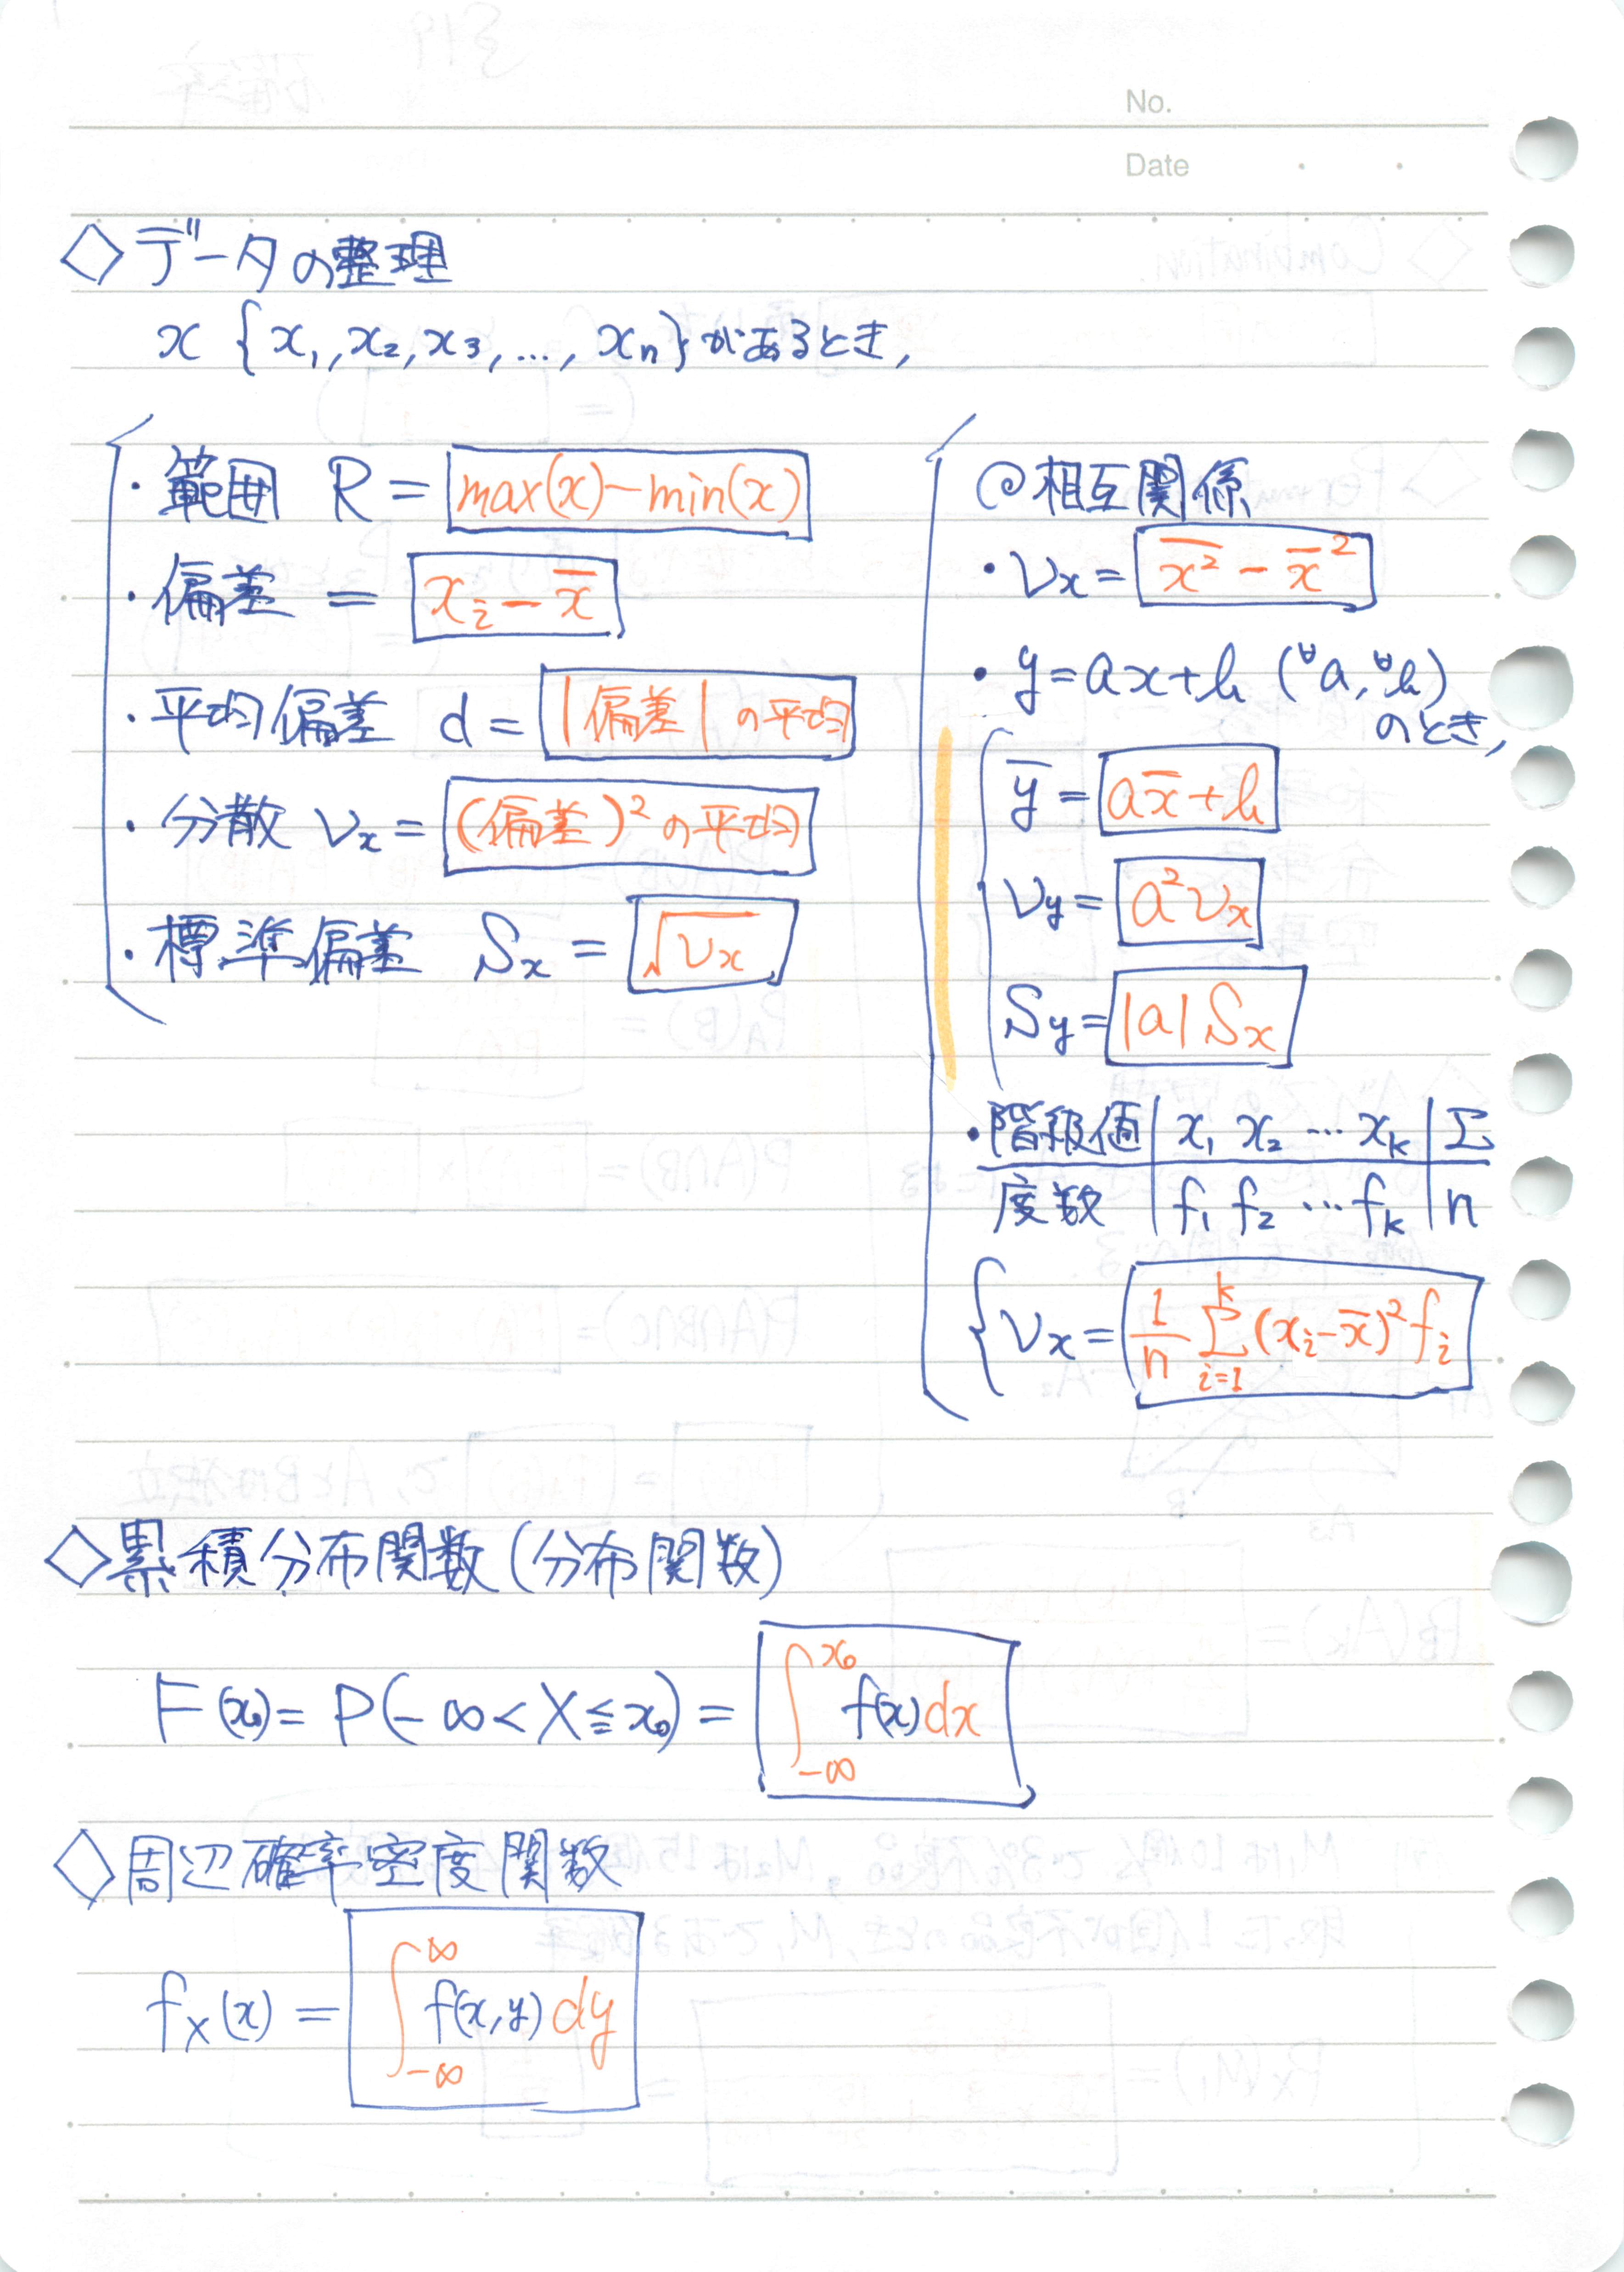 No.
Date
◇データの整理
x {x₁, x₂, x₃, …, xₙ} があるとき,
・範囲 R = max(x)−min(x)
・偏差 = xᵢ − x̅
・平均偏差 d = |偏差| の平均
・分散 νx = (偏差)² の平均
・標準偏差 Sx = √νx
@相互関係
・νx = x²̅ − x̅²
・y = ax+b (∀a, ∀b)
のとき,
y̅ = ax̅ + b
νy = a²νx
Sy = |a| Sx
・階級値 | x₁ x₂ … xₖ | Σ
度数 | f₁ f₂ … fₖ | n
{ νx = 1/n Σ_{i=1}^{k} (xᵢ − x̅)² fᵢ
◇累積分布関数 (分布関数)
F(x₀) = P(−∞ < X ≦ x₀) = ∫_{−∞}^{x₀} f(x) dx
◇周辺確率密度関数
fX(x) = ∫_{−∞}^{∞} f(x, y) dy